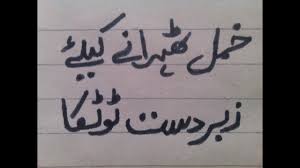 حمل ٹھہرانے کیلئے
زبردست ٹوٹکا